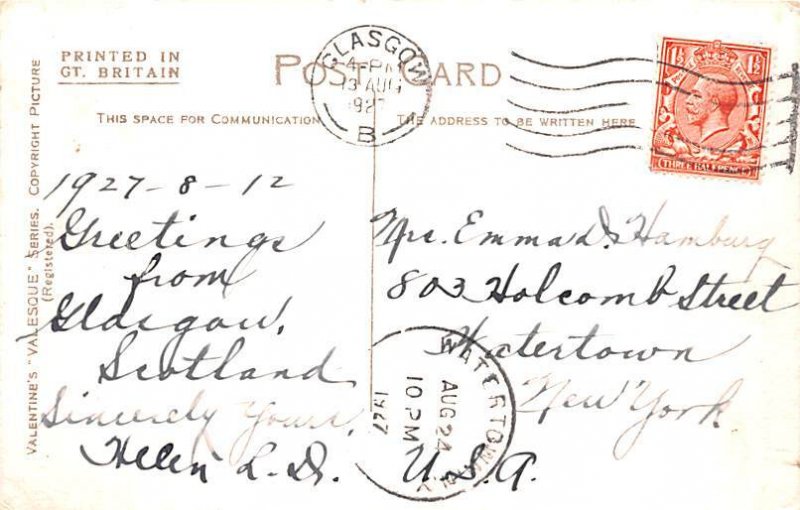 PRINTED IN
GT. BRITAIN
POST CARD
THIS SPACE FOR COMMUNICATION
THE ADDRESS TO BE WRITTEN HERE
VALENTINE'S "VALESQUE" SERIES. COPYRIGHT PICTURE
(Registered).
GLASGOW
4-PM
13 AUG
1927
B
1½ 1½
THREE HALFPENCE
1927-8-12
Greetings
from
Glasgow,
Scotland
Sincerely Yours,
Helen L. D.
Mrs. Emma D. Hamburg
803 Holcomb Street
Watertown
New York
U.S.A.
WATERTOWN
AUG 24
10 PM
1927